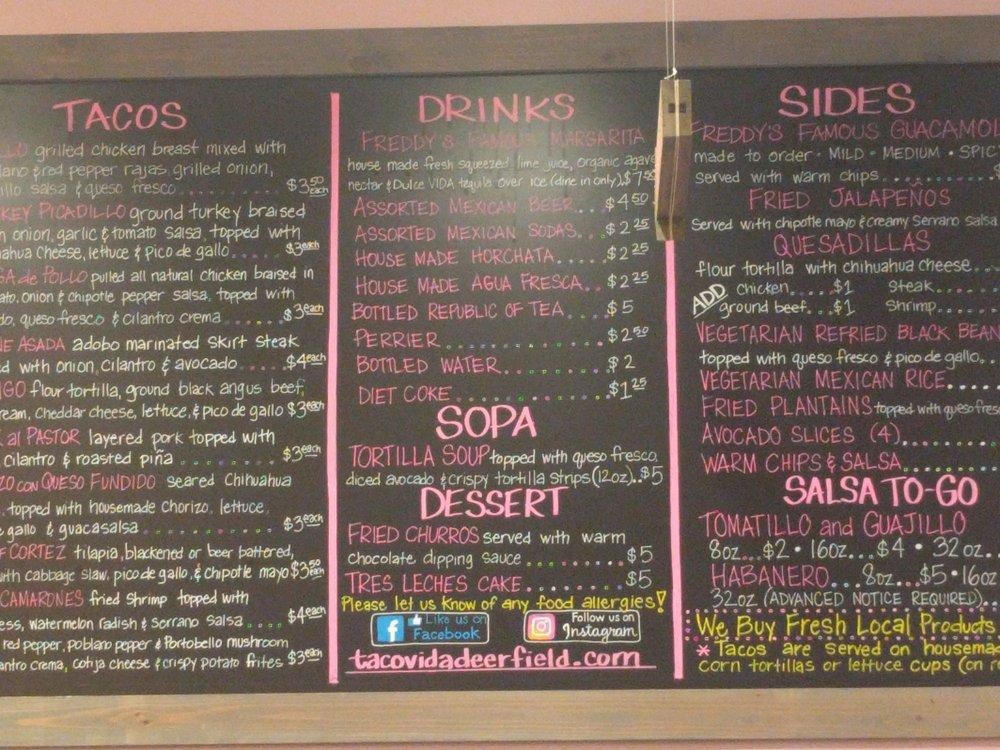 TACOS
grilled chicken breast mixed with
red pepper rajas, grilled onion,
salsa & queso fresco $3.50 each
PICADILLO ground turkey braised
onion, garlic & tomato salsa, topped with
cheese, lettuce & pico de gallo $3 each
de POLLO pulled all natural chicken braised in
onion & chipotle pepper salsa, topped with
queso fresco & cilantro crema $3 each
ASADA adobo marinated skirt steak
with onion, cilantro & avocado $4 each
flour tortilla, ground black angus beef,
cheddar cheese, lettuce, & pico de gallo $3 each
al PASTOR layered pork topped with
cilantro & roasted piña $3 each
CON QUESO FUNDIDO seared Chihuahua
topped with housemade Chorizo, lettuce,
gallo & guacasalsa $3 each
CORTEZ tilapia, blackened or beer battered,
with cabbage slaw, pico de gallo, & Chipotle mayo $3.50 each
CAMARONES fried shrimp topped with
watermelon radish & Serrano Salsa $4 each
red pepper, poblano pepper & Portobello mushroom
crema, cotija cheese & crispy potato frites $3 each
DRINKS
FREDDY'S FAMOUS MARGARITA
house made fresh squeezed lime juice, organic agave
nectar & Dulce VIDA tequila over ice (dine in only) $7.50
ASSORTED MEXICAN BEER... $4.50
ASSORTED MEXICAN SODAS... $2.25
HOUSE MADE HORCHATA... $2.25
HOUSE MADE AGUA FRESCA... $2.25
BOTTLED REPUBLIC OF TEA... $5
PERRIER... $2.50
BOTTLED WATER... $2
DIET COKE... $1.25
SOPA
TORTILLA SOUP topped with queso fresco,
diced avocado & crispy tortilla strips (12oz)... $5
DESSERT
FRIED CHURROS served with warm
chocolate dipping sauce... $5
TRES LECHES CAKE... $5
Please let us know of any food allergies!
Like us on
Facebook
Follow us on
Instagram
tacovidadeerfield.com
SIDES
FREDDY'S FAMOUS
made to order · MILD · MEDIUM ·
served with warm chips
FRIED JALAPEÑOS
Served with chipotle mayo & creamy Serrano salsa
QUESADILLAS
flour tortilla with chihuahua cheese...
ADD chicken... $1 Steak...
ground beef... $1 Shrimp...
VEGETARIAN REFRIED BLACK
topped with queso fresco & pico de gallo...
VEGETARIAN MEXICAN RICE...
FRIED PLANTAINS topped with queso
AVOCADO SLICES (4)...
WARM CHIPS & SALSA...
SALSA TO-GO
TOMATILLO and GUAJILLO
8oz... $2 • 16oz... $4 • 32oz...
HABANERO... 8oz... $5 • 16oz
32oz (ADVANCED NOTICE REQUIRED)...
We Buy Fresh Local Products
* Tacos are served on
corn tortillas or lettuce cups